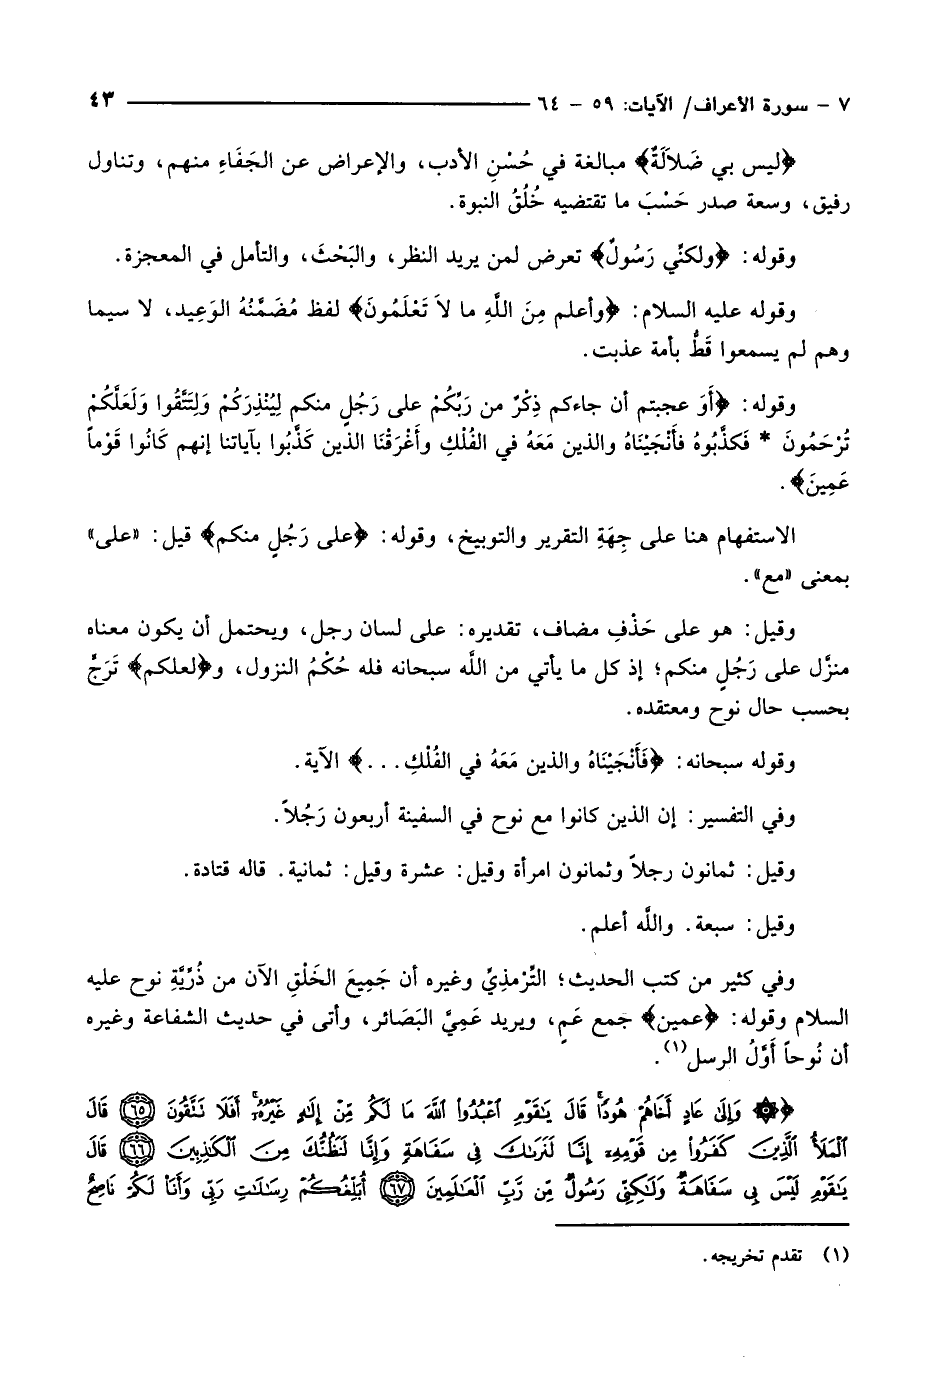 ٧ – سورة الأعراف/ الآيات: ٥٩ – ٦٤ ٤٣
﴿ليس بي ضَلاَلَةٌ﴾ مبالغة في حُسْنِ الأدب، والإعراض عن الجَفَاءِ منهم، وتناول
رفيق، وسعة صدر حَسْبَ ما تقتضيه خُلُقُ النبوة.
وقوله: ﴿ولكنِّي رَسُولٌ﴾ تعرض لمن يريد النظر، والبَحْثَ، والتأمل في المعجزة.
وقوله عليه السلام: ﴿وأعلم مِنَ اللَّهِ ما لاَ تَعْلَمُونَ﴾ لفظ مُضَمَّنُهُ الوَعِيد، لا سيما
وهم لم يسمعوا قَطُّ بأمة عذبت.
وقوله: ﴿أَوَ عجبتم أن جاءكم ذِكْرٌ من رَبِّكُمْ على رَجُلٍ منكم لِيُنْذِرَكُمْ وَلِتَتَّقُوا وَلَعَلَّكُمْ
تُرْحَمُونَ * فَكَذَّبُوهُ فأَنْجَيْنَاهُ والذين مَعَهُ في الفُلْكِ وأَغْرَقْنَا الذين كَذَّبُوا بآياتنا إنهم كَانُوا قَوْماً
عَمِينَ﴾.
الاستفهام هنا على جِهَةِ التقرير والتوبيخ، وقوله: ﴿على رَجُلٍ منكم﴾ قيل: «على»
بمعنى «مع».
وقيل: هو على حَذْفِ مضاف، تقديره: على لسان رجل، ويحتمل أن يكون معناه
منزَّل على رَجُلٍ منكم؛ إذ كل ما يأتي من اللَّه سبحانه فله حُكْمُ النزول، و﴿لعلكم﴾ تَرَجٍّ
بحسب حال نوح ومعتقده.
وقوله سبحانه: ﴿فَأَنْجَيْنَاهُ والذين مَعَهُ في الفُلْكِ...﴾ الآية.
وفي التفسير: إن الذين كانوا مع نوح في السفينة أربعون رَجُلاً.
وقيل: ثمانون رجلاً وثمانون امرأة وقيل: عشرة وقيل: ثمانية. قاله قتادة.
وقيل: سبعة. واللَّه أعلم.
وفي كثير من كتب الحديث؛ التِّرْمذِيِّ وغيره أن جَمِيعَ الخَلْقِ الآن من ذُرِّيَّةِ نوح عليه
السلام وقوله: ﴿عمين﴾ جمع عَمٍ، ويريد عَمِيَّ البَصَائر، وأتى في حديث الشفاعة وغيره
أن نُوحاً أَوَّلُ الرسل(١).
﴿۞ وَإِلَىٰ عَادٍ أَخَاهُمْ هُودًا ۗ قَالَ يَٰقَوْمِ ٱعْبُدُوا۟ ٱللَّهَ مَا لَكُم مِّنْ إِلَٰهٍ غَيْرُهُۥٓ ۚ أَفَلَا تَتَّقُونَ ٦٥ قَالَ
ٱلْمَلَأُ ٱلَّذِينَ كَفَرُوا۟ مِن قَوْمِهِۦٓ إِنَّا لَنَرَىٰكَ فِى سَفَاهَةٍ وَإِنَّا لَنَظُنُّكَ مِنَ ٱلْكَٰذِبِينَ ٦٦ قَالَ
يَٰقَوْمِ لَيْسَ بِى سَفَاهَةٌ وَلَٰكِنِّى رَسُولٌ مِّن رَّبِّ ٱلْعَٰلَمِينَ ٦٧ أُبَلِّغُكُمْ رِسَٰلَٰتِ رَبِّى وَأَنَا۠ لَكُمْ نَاصِحٌ
(١) تقدم تخريجه.